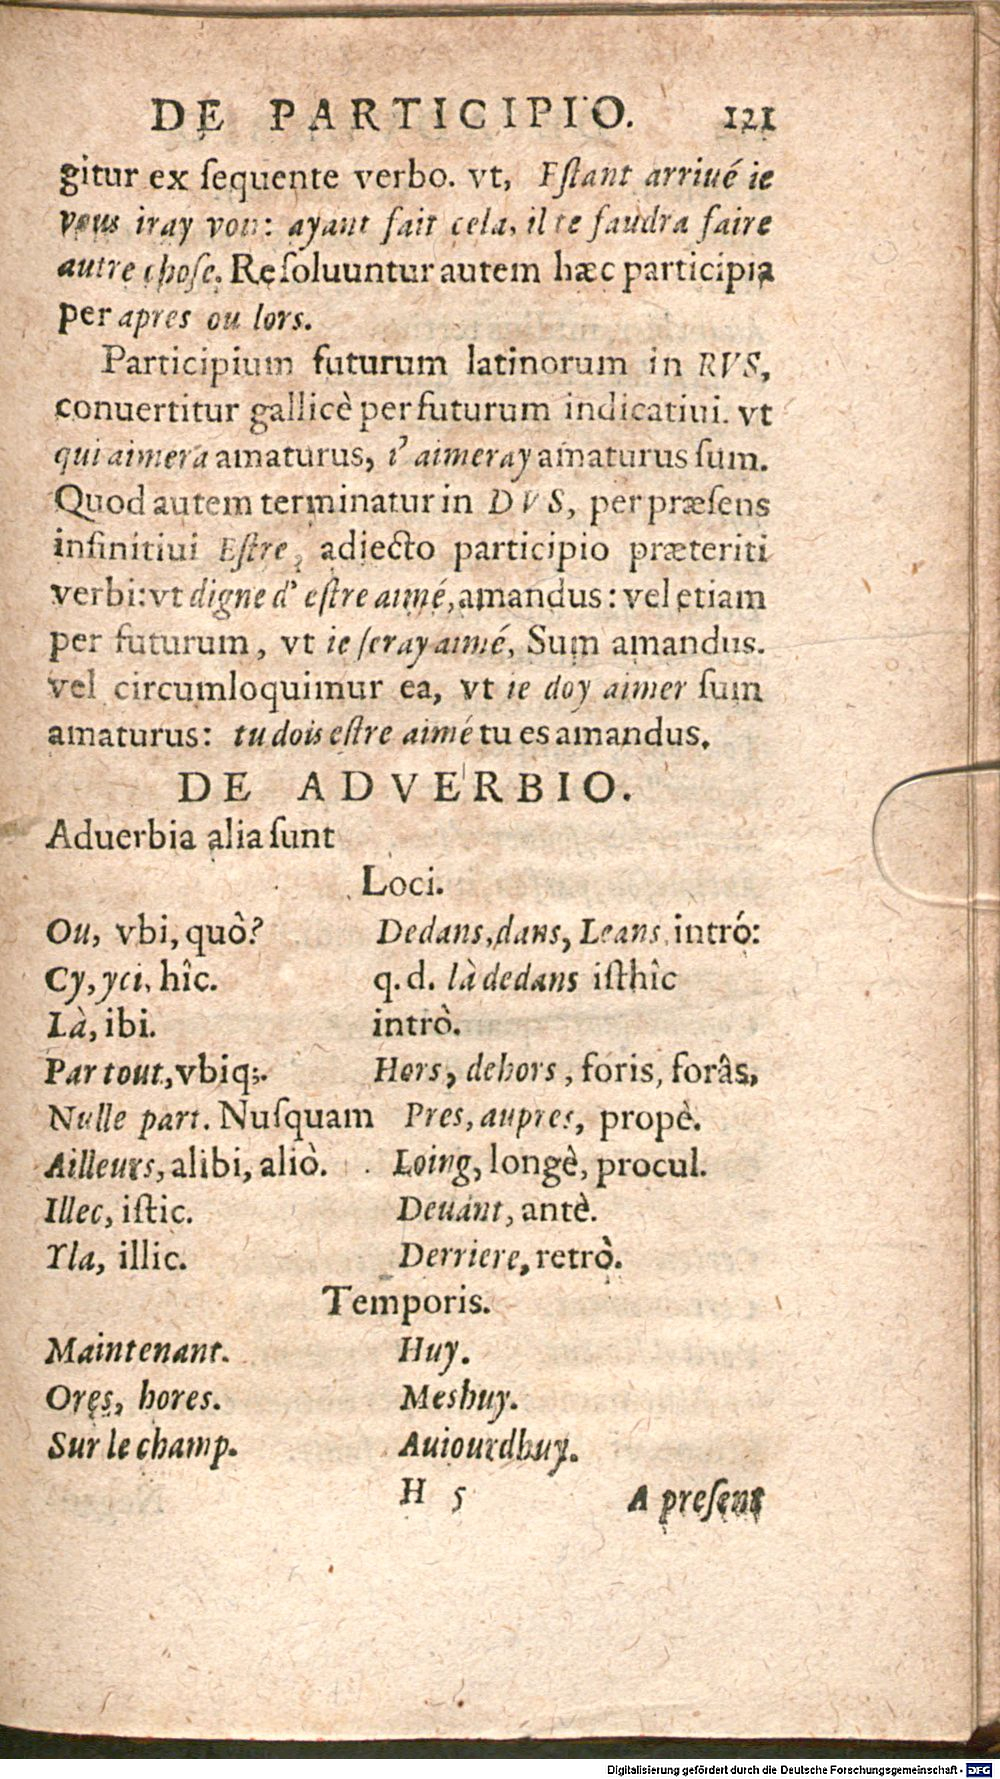 DE PARTICIPIO. 121
gitur ex ſequente verbo. vt, Eſtant arriué ie
vous iray voir: ayant fait cela, il te faudra faire
autre choſe. Reſoluuntur autem hæc participia
per apres ou lors.
Participium futurum latinorum in RVS,
conuertitur gallicè per futurum indicatiui. vt
qui aimera amaturus, i' aimeray amaturus ſum.
Quod autem terminatur in DVS, per præſens
infinitiui Eſtre, adiecto participio præteriti
verbi: vt digne d' eſtre aimé, amandus: vel etiam
per futurum, vt ie ſeray aimé, Sum amandus.
vel circumloquimur ea, vt ie doy aimer ſum
amaturus: tu dois eſtre aimé tu es amandus.
DE ADVERBIO.
Aduerbia alia ſunt
Loci.
Ou, vbi, quò?
Cy, yci, hîc.
Là, ibi.
Par tout, vbiq;.
Nulle part. Nuſquam
Ailleurs, alibi, aliò.
Illec, iſtic.
Yla, illic.
Dedans, dans, Leans, intró:
q.d. là dedans iſthîc
intrò.
Hors, dehors, foris, forâs,
Pres, aupres, propè.
Loing, longè, procul.
Deuant, antè.
Derriere, retrò.
Temporis.
Maintenant.
Ores, hores.
Sur le champ.
Huy.
Meshuy.
Auiourdhuy.
H 5 A preſent
Digitalisierung gefördert durch die Deutsche Forschungsgemeinschaft - DFG